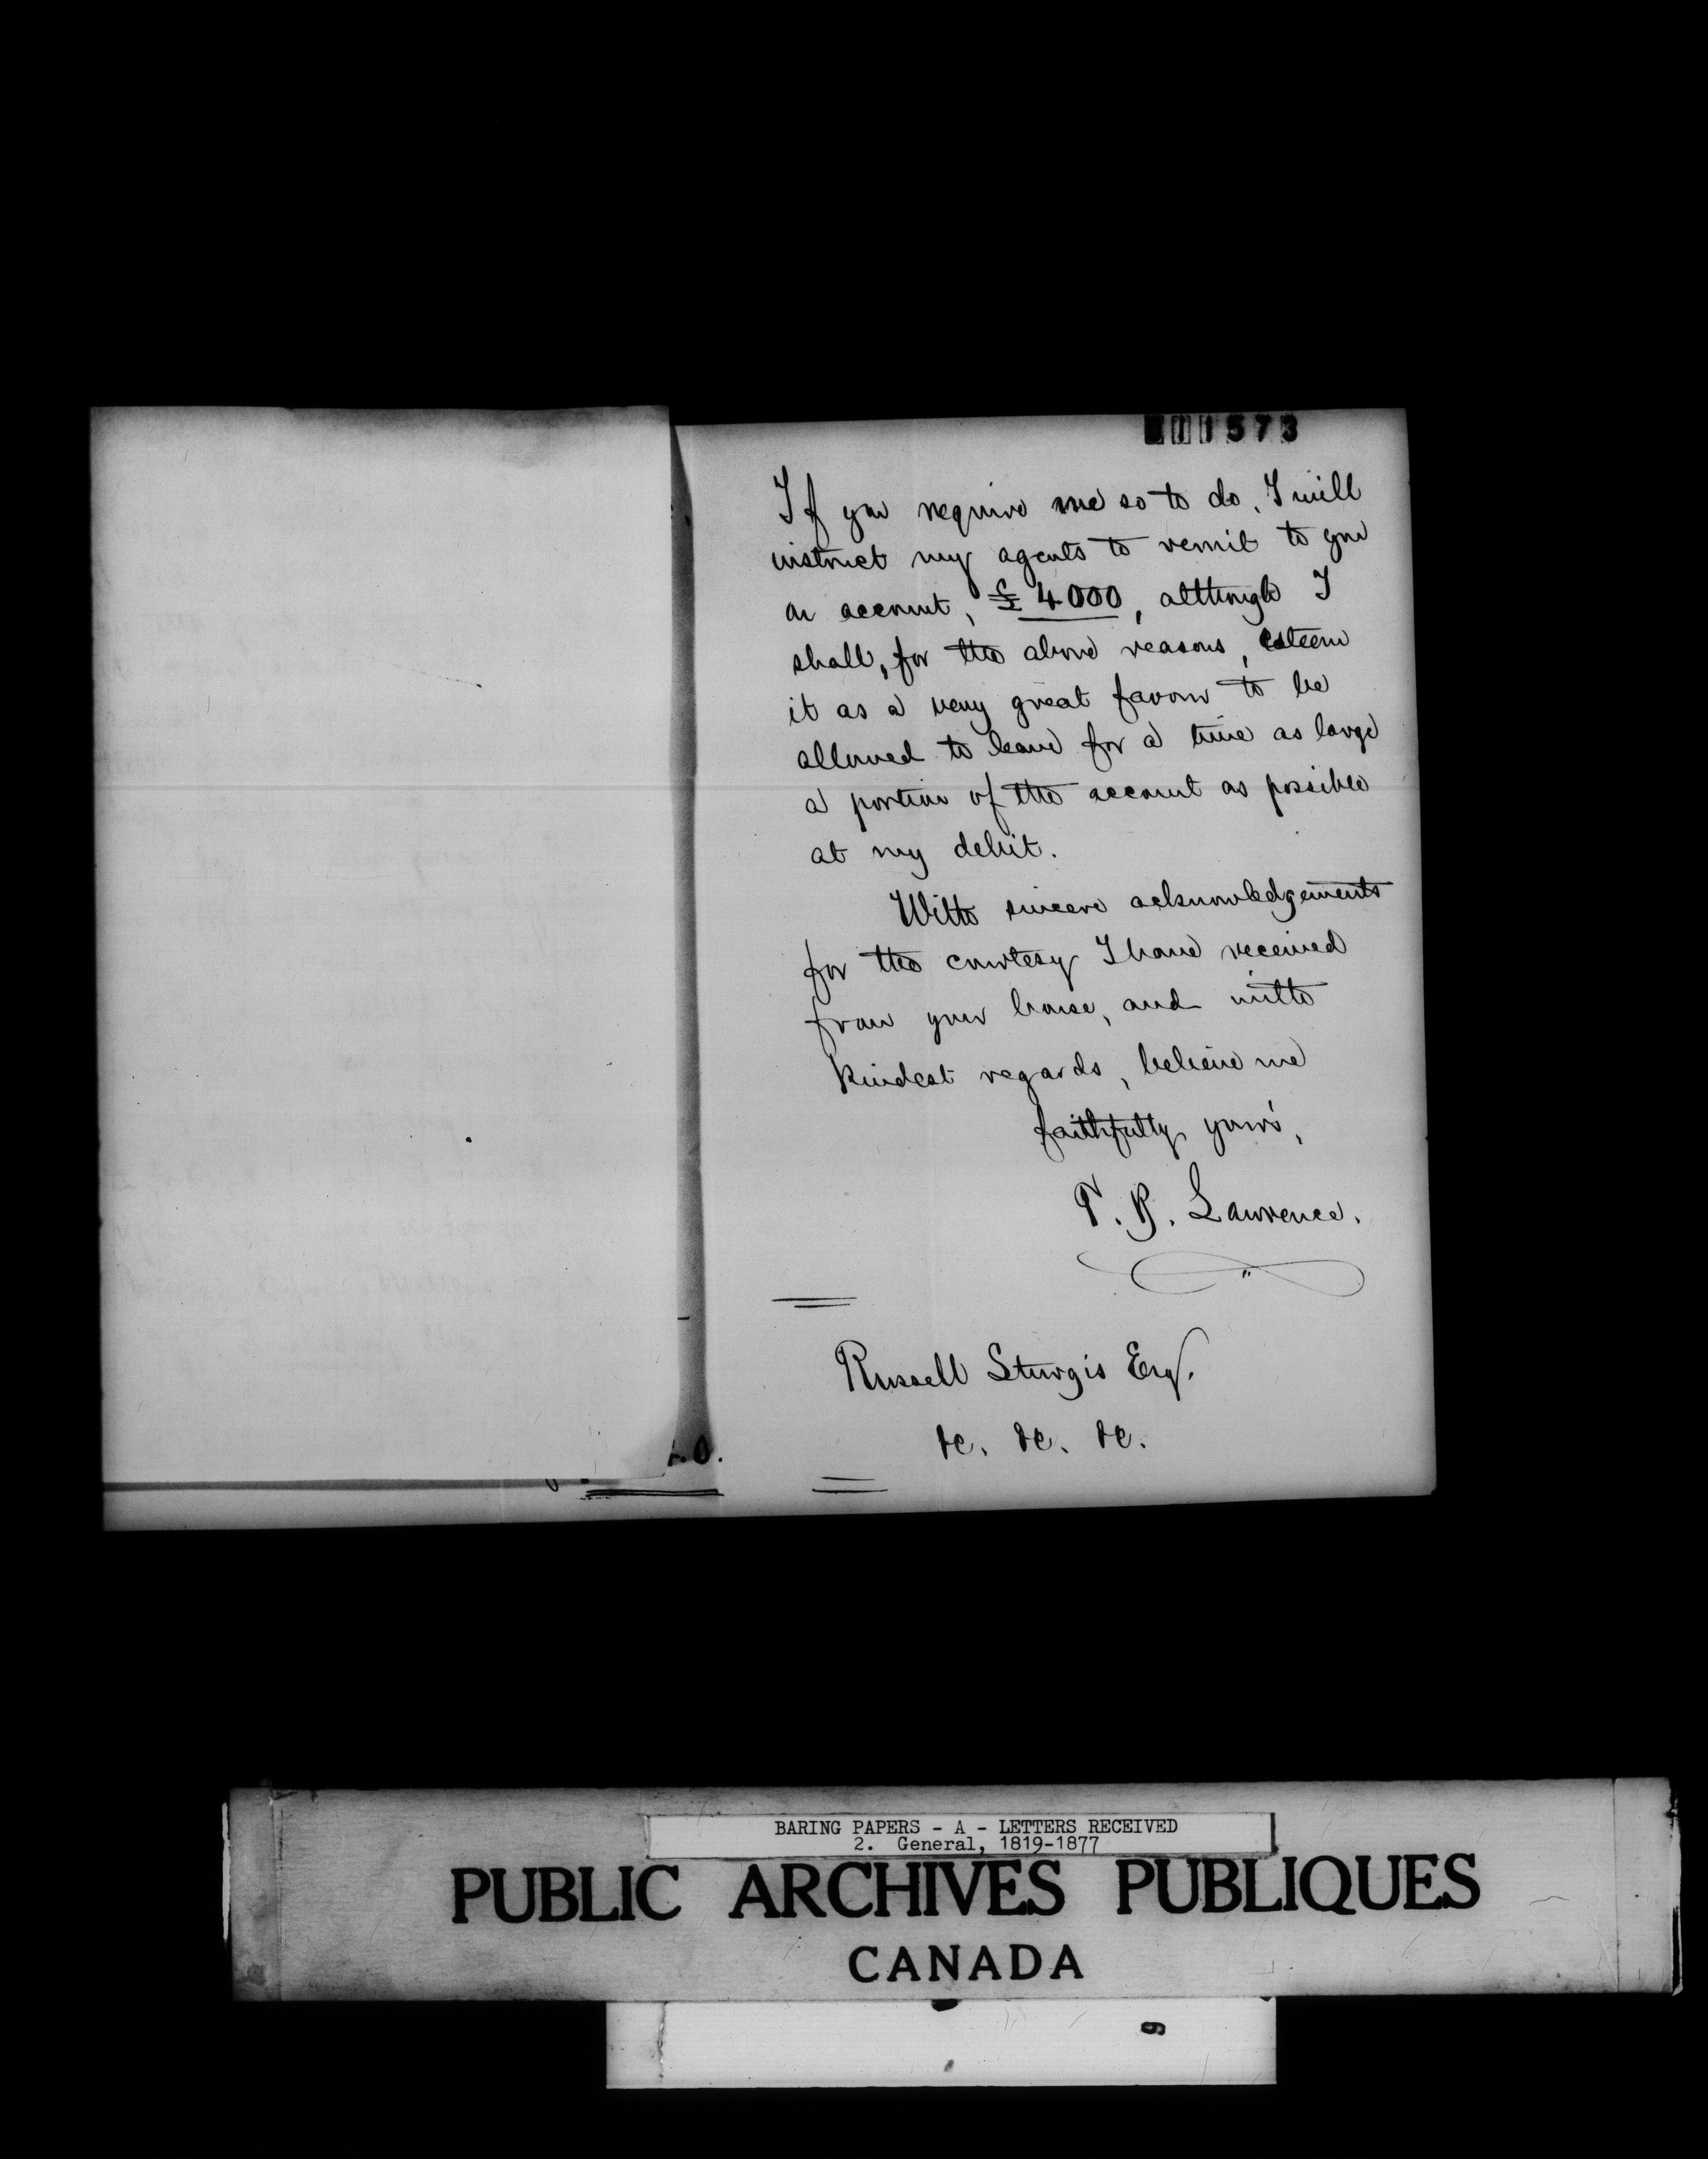 1573
If you require me so to do, I will
instruct my agents to remit to you
on account, £ 4000, although I
shall, for the above reasons, esteem
it as a very great favour to be
allowed to leave for a time as large
a portion of the account as possible
at my debit.
With sincere acknowledgements
for the courtesy I have received
from your house, and with
kindest regards, believe me
faithfully yours,
T. B. Lawrence.
Russell Sturgis Esq.
&c. &c. &c.
.O.
BARING PAPERS - A - LETTERS RECEIVED
2. General, 1819-1877
PUBLIC ARCHIVES PUBLIQUES
CANADA